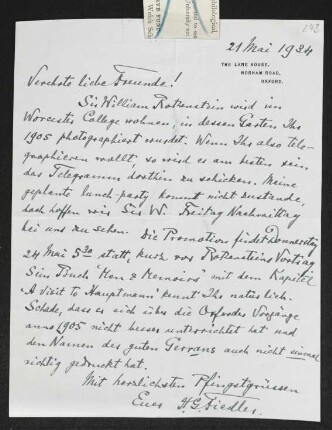 243
21 Mai 1934
THE LANE HOUSE,
NORHAM ROAD,
OXFORD.
Verehrte liebe Freunde!
Sir William Rothenstein wird in
Worcester College wohnen, in dessen Garten Ihr
1905 photographiert wurdet. Wenn Ihr also tele-
graphieren wollt, so wird es am besten sein
das Telegramm dorthin zu schicken. Meine
geplante lunch-party kommt nicht zustande,
doch hoffen wir Sir W. Freitag Nachmittag
bei uns zu sehen. Die Promotion findet Donnerstag
24 Mai 5.30 statt, kurz vor Rothensteins Vortrag
Sein Buch "Men & Memoirs" mit dem Kapitel
"A visit to Hauptmann" kennt Ihr natürlich.
Schade, dass er sich über die Oxforder Vorgänge
anno 1905 nicht besser unterrichtet hat und
den Namen des guten Gerrans auch nicht einmal
richtig gedruckt hat.
Mit herzlichsten Pfingstgrüssen
Euer H.G. Fiedler.